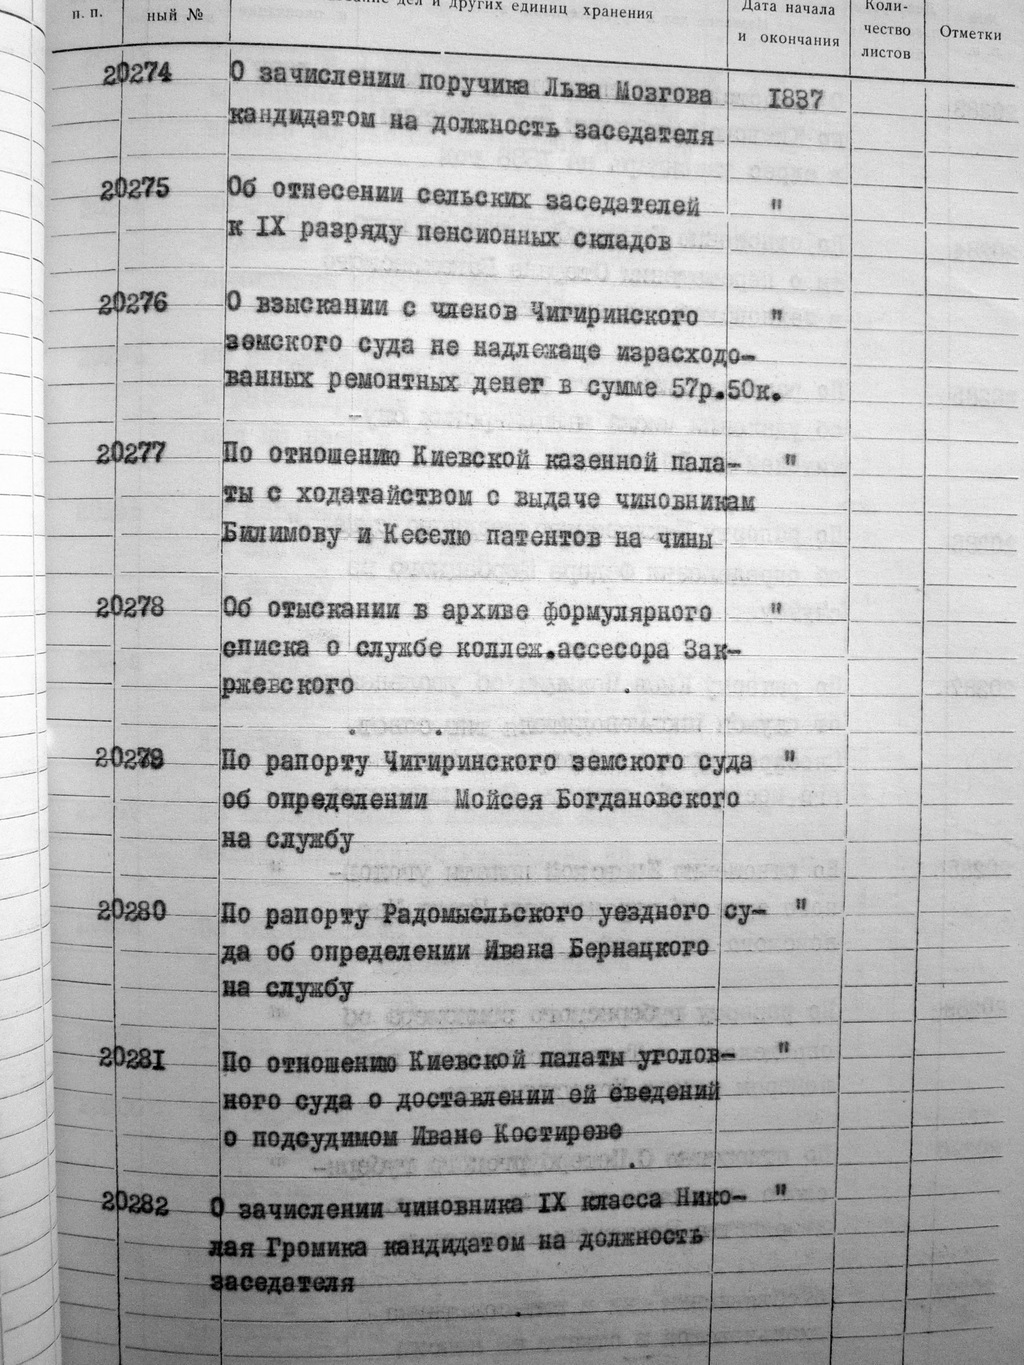 дел и других единиц хранения
Дата начала
и окончания
Коли-
чество
листов
Отметки
п. п.
ный №
20274 О зачислении поручика Льва Мозгова 1837
кандидатом на должность заседателя
20275 Об отнесении сельских заседателей "
к IX разряду пенсионных складов
20276 О взыскании с членов Чигиринского "
земского суда не надлежаще израсходо-
ванных ремонтных денег в сумме 57р.50к.
20277 По отношению Киевской казенной пала- "
ты с ходатайством о выдаче чиновникам
Билимову и Кеселю патентов на чины
20278 Об отыскании в архиве формулярного "
списка о службе коллеж.ассесора Зак-
ржевского
20279 По рапорту Чигиринского земского суда "
об определении Мойсея Богдановского
на службу
20280 По рапорту Радомысльского уездного су- "
да об определении Ивана Бернацкого
на службу
20281 По отношению Киевской палаты уголов- "
ного суда о доставлении ей сведений
о подсудимом Иване Костиреве
20282 О зачислении чиновника IX класса Нико- "
лая Громика кандидатом на должность
заседателя